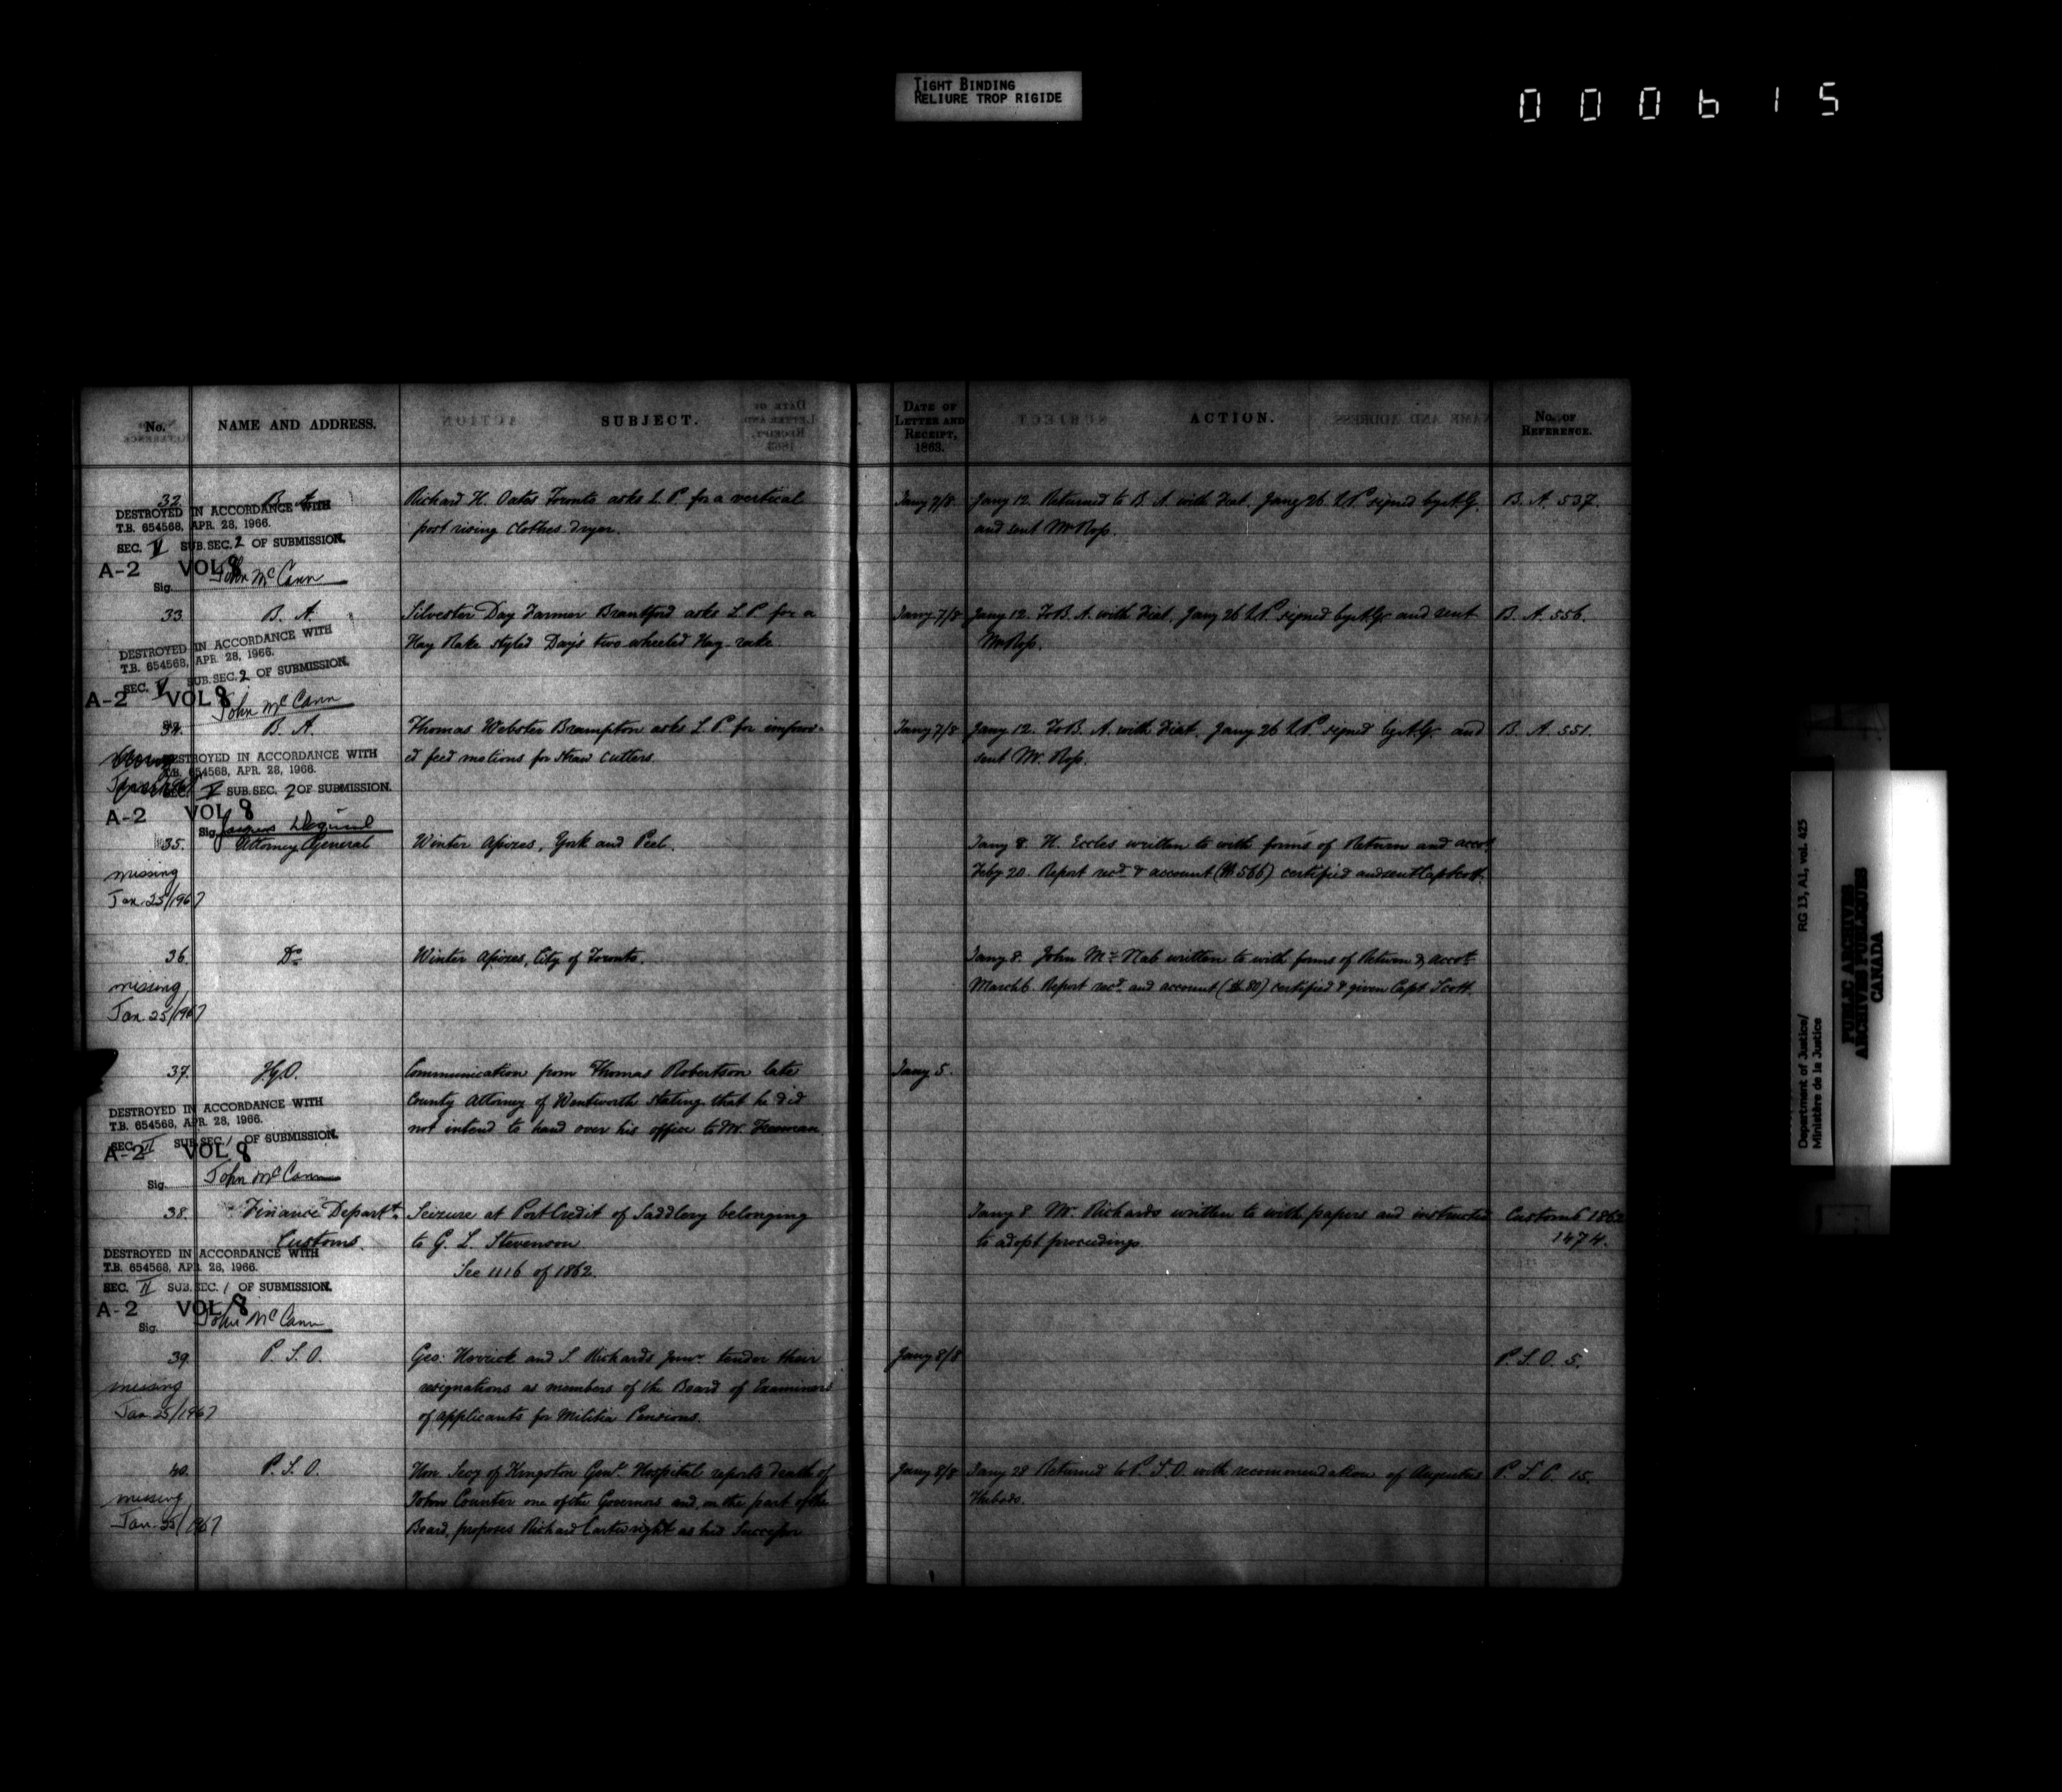 TIGHT BINDING
RELIURE TROP RIGIDE
000615
No.
NAME AND ADDRESS.
SUBJECT.
DATE OF LETTER AND RECEIPT, 1863.
ACTION.
No. OF REFERENCE.
32. B. A. Richard H. Oates Toronto asks L. P. for a vertical
post rising clothes dryer.
Jany 7/8 Jany 12. Returned to B. A. with Fiat. Jany 26 L.P. signed by A.G.
and sent Mr Ross.
B. A. 537.
DESTROYED IN ACCORDANCE WITH
T.B. 654568, APR. 28, 1966.
SEC. V SUB.SEC. 2 OF SUBMISSION.
A-2 VOL 8
Sig. John McCann
33. B. A. Silvester Day Farmer Brantford asks L. P. for a
Hay Rake styled Day's two wheeled Hay-rake.
Jany 7/8 Jany 12. To B. A. with Fiat. Jany 26 L.P. signed by A.G. and sent
Mr Ross.
B. A. 556.
DESTROYED IN ACCORDANCE WITH
T.B. 654568, APR. 28, 1966.
SEC. V SUB.SEC. 2 OF SUBMISSION.
A-2 VOL 8
John McCann
34. B. A. Thomas Webster Brampton asks L. P. for improv-
ed feed motions for straw cutters.
Jany 7/8 Jany 12. To B. A. with Fiat. Jany 26 L.P. signed by A.G. and
sent Mr. Ross.
B. A. 551.
DESTROYED IN ACCORDANCE WITH
T.B. 654568, APR. 28, 1966.
SEC. V SUB SEC. 2 OF SUBMISSION.
A-2 VOL 8
Sig.
35. Attorney General Winter Assizes, York and Peel.
Jany 8. H. Eccles written to with forms of Return and acct.
Feby 20. Report recd & account ($566) certified and sent Capt Scott.
missing
Jan. 25/1967
36. Do Winter Assizes, City of Toronto.
Jany 8. John McNab written to with forms of Return & acct
March 6. Report recd. and account ($80) certified & given Capt Scott.
missing
Jan. 25/1967
37. Communication from Thomas Robertson late
County Attorney of Wentworth stating that he did
not intend to hand over his office to Mr. Freeman
Jany 5.
DESTROYED IN ACCORDANCE WITH
T.B. 654568, APR. 28, 1966.
SEC. II SUB SEC. 1 OF SUBMISSION.
A-2 VOL 8
Sig. John McCann
38. Finance Departt. Seizure at Port Credit of Saddlery belonging
Customs. to G. L. Stevenson
See 1116 of 1862.
Jany 8. Mr. Richards written to with papers and instructed
to adopt proceedings
Customs 1862
1474.
DESTROYED IN ACCORDANCE WITH
T.B. 654568, APR. 28, 1966.
SEC. II SUB.SEC. 1 OF SUBMISSION.
A-2 VOL 8
Sig. John McCann
39. P. S. O. Geo: Herrick and S. Richards Junr. tender their
resignations as members of the Board of Examiners
of applicants for Militia Pensions.
Jany 8/8
P. S. O. 5.
missing
Jan. 25/1967
40. P. S. O. Hon. Secy of Kingston Genl. Hospital reports death of
John Counter one of the Governors and, on the part of the
Board, proposes Richard Cartwright as his Successor
Jany 8/8 Jany 28 Returned to P. S. O. with recommendation of Augustus
P. S. O. 15.
missing
Jan. 25/1967
Department of Justice/
Ministère de la Justice
RG 13, A1, vol. 425
PUBLIC ARCHIVES
ARCHIVES PUBLIQUES
CANADA